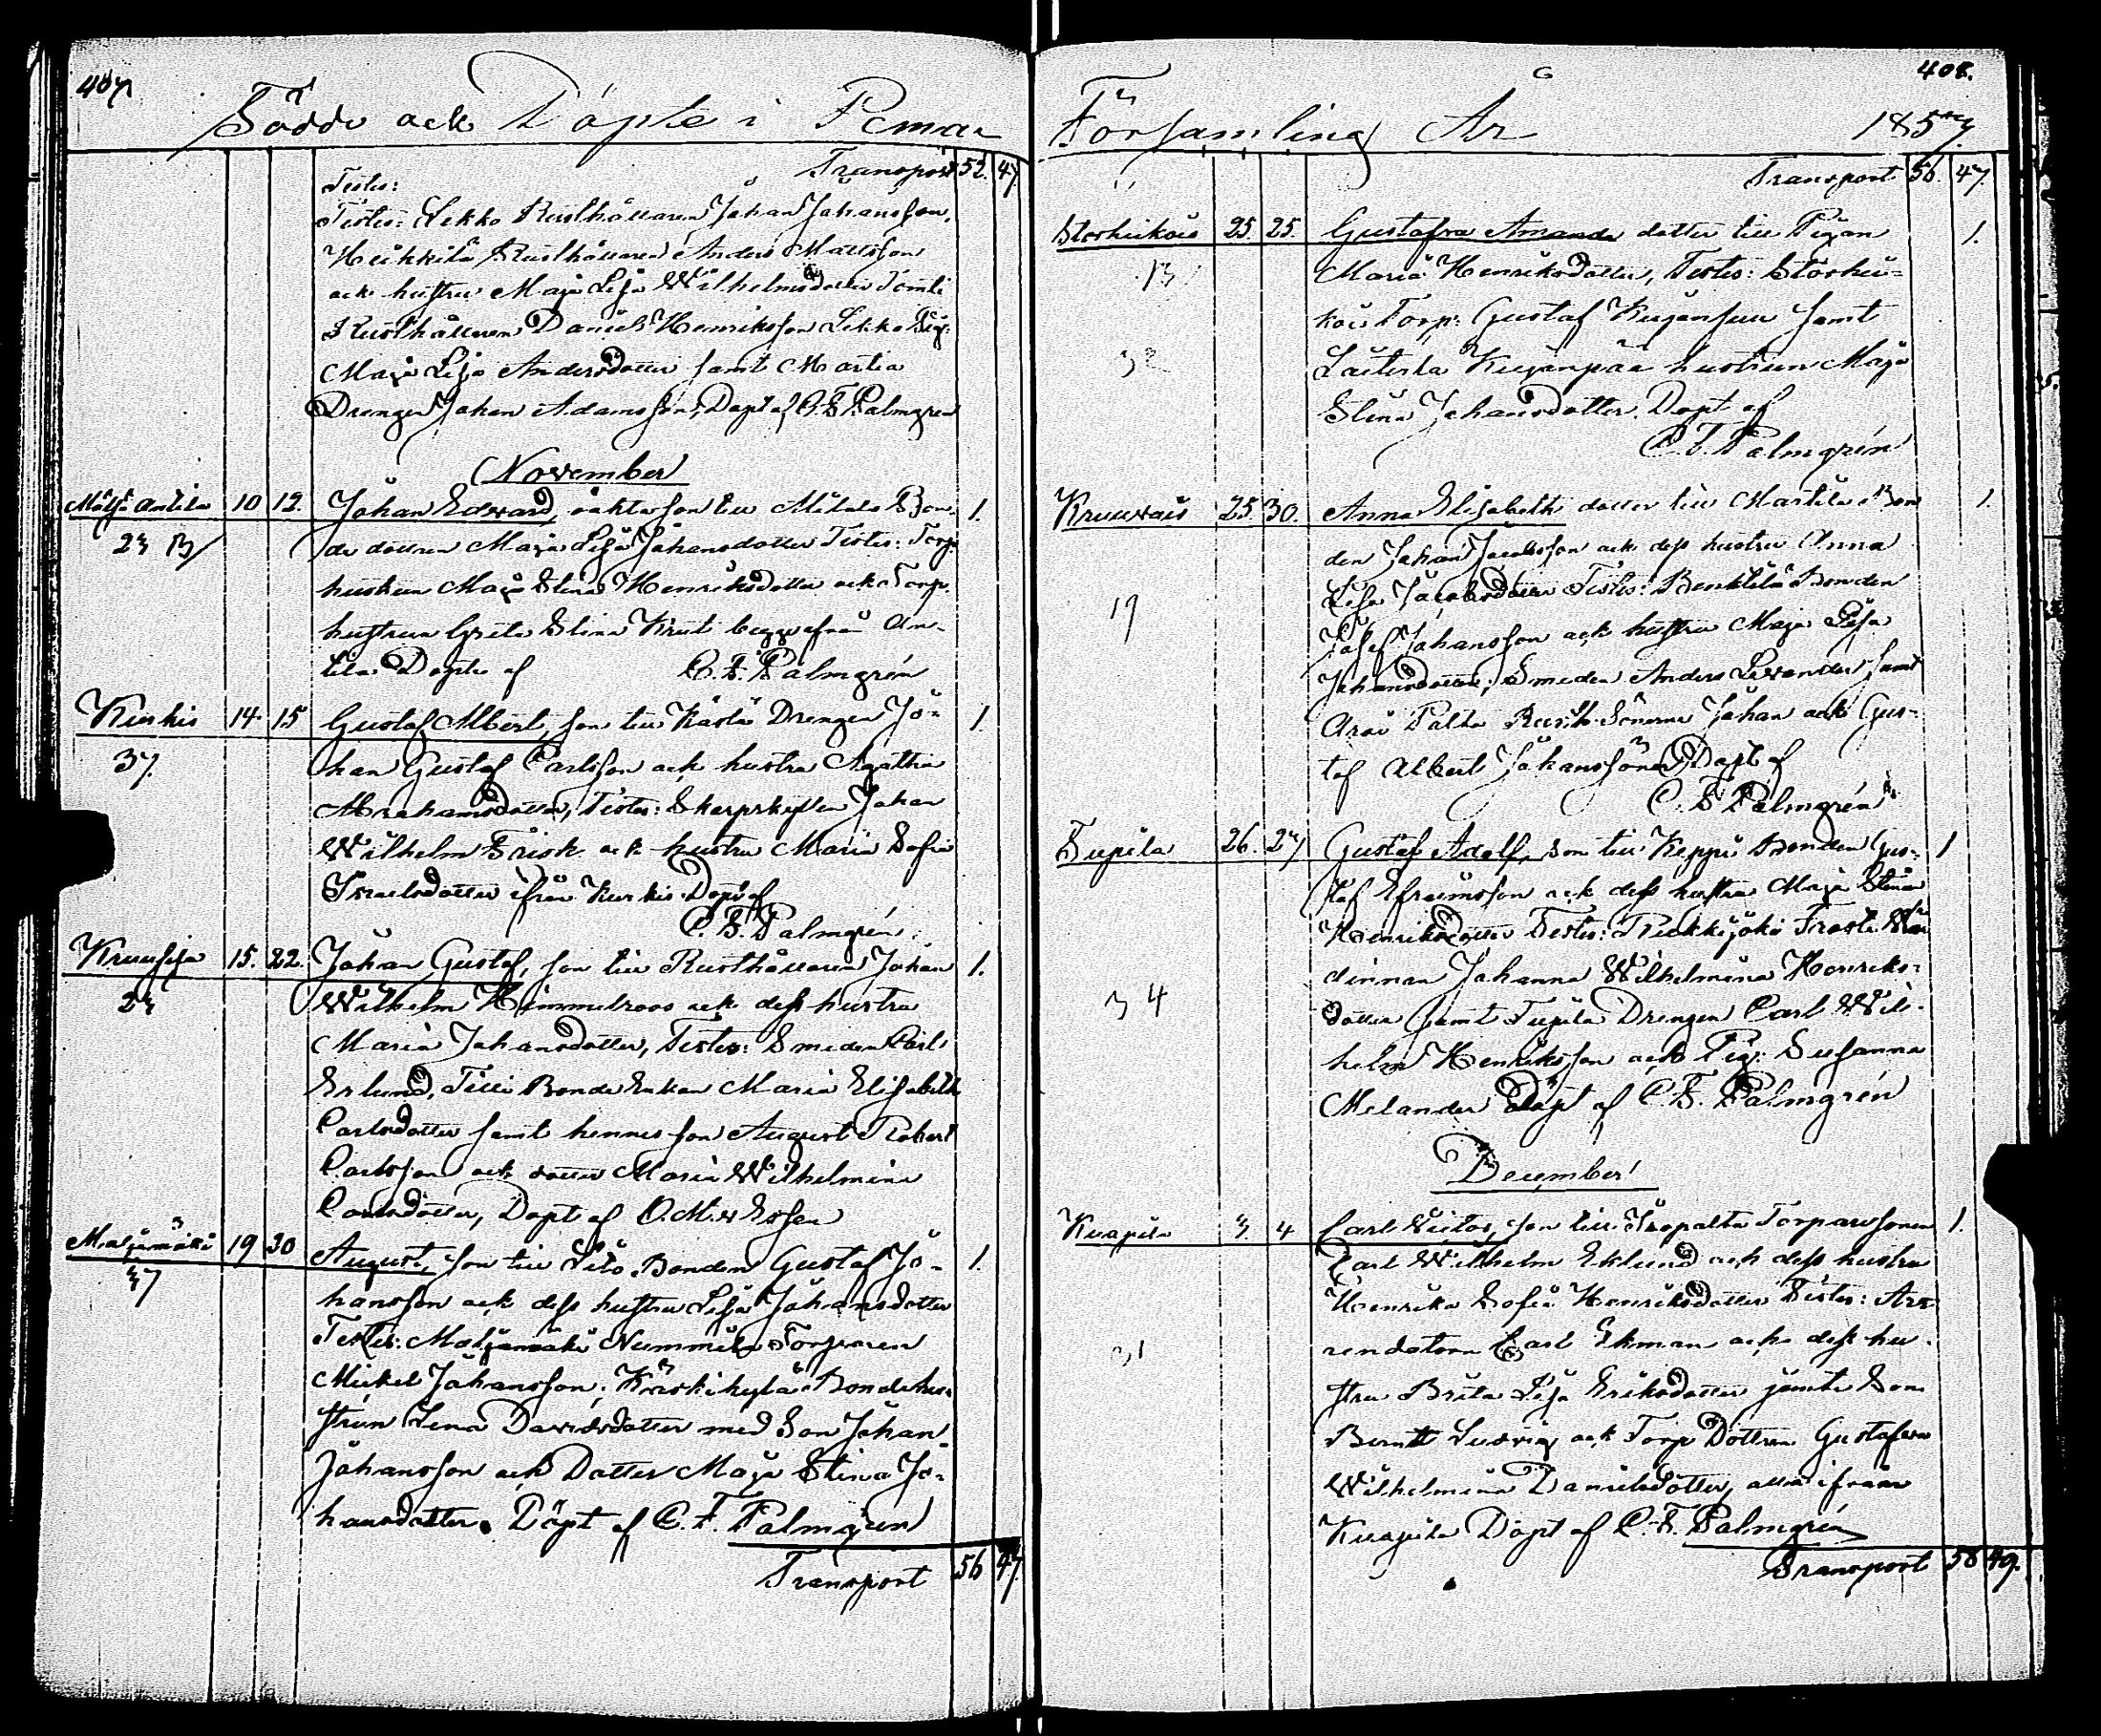 407
Födde ack Döpte i Pemar
Transport 52. 47.
Testes:
Testes: Lekko Rusthållaren Johan Johansson,
Heikkilä Rusthållaren Anders Mattsson
ack hustru Maja Lisa Wilhelmsdotter Tomti
Rusthållaren Daniel Henriksson Lekko Pig:
Maja Lisa Andersdotter samt Martia
Drengen Johan Adamsson, Döpt af C. F. Palmgren
November
10 12. Johan Edvard, oäkta son till Bon- 1.
23 B de dottren Maja Lisa Johansdotter Testes: Torp:
hustrun Maja Stina Henriksdotter ack Torp.
hustrun Greta Stina begge från An-
tila Döpte af C. F. Palmgrén
Kurkis 14. 15 Gustaf Albert, son till Drengen Jo- 1.
37. han Gustaf Carlsson ack hustru Agatha
Abrahamsdotter, Testes: Skarpskytten Johan
Wilhelm Frisk ack hustru Maria Sofia
Israelsdotter ifrån Kurkis Döpt af
C. F. Palmgrén.
15. 22. Johan Gustaf, son till Rusthållaren Johan 1.
23 Wilhelm Himmelroos ack dess hustru
Maria Johansdotter, Testes: Smeden Carl
Erlund, Tilli Bonde Enkan Maria Elisabeth
Carlsdotter samt hennes son August Robert
Carlsson ack dotter Maria Wilhelmina
Carlsdotter, Döpt af O. M. v Essen
19 30 August, son till Bonden Gustaf Jo- 1.
37 hansson ack dess hustru Lisa Johansdotter
Testes: Nummila Torparen
Mickel Johansson, Koskikylä Bondehus-
trun Lena Davidsdotter med Son Johan
Johansson ack Dotter Maja Stina Jo-
hansdotter. Döpt af C. F. Palmgren
Transport 56 47.
408.
Församling År 1857
Transport 56. 47.
25. 25. Gustafva Amanda dotter till Pigan 1.
13 Maria Henriksdotter, Testes: Storhei-
kois Torp: Gustaf samt
32 hustrun Maja
Stina Johansdotter. Döpt af
C. F. Palmgrén
Kruuvais 25. 30. Anna Elisabeth dotter till Martila Bon 1.
den Johan Jacobsson ack dess hustru Anna
Lisa Jacobsdotter Testes: Benktilä Bonden
19 Josef Johansson ack hustru Maja Lisa
Johansdotter, Smeden Anders Levander samt
Palta Rusth: Sönerne Johan ack Gus-
taf Albert Johanssöner, Döpt af
C. F. Palmgrén
26. 27 Gustaf Adolf, son till Keppi Bonden Gus- 1
taf Efraimsson ack dess hustru Maja Stina
Henriksdotter Testes: Wär-
dinnan Johanna Wilhelmina Henriks-
34 dotter samt Drengen Carl Wil-
helm Henriksson ack Pig: Susanna
Melander Döpt af C. F. Palmgrén
December
3. 4 Carl Victor, son till Torpare sonen 1.
Carl Wilhelm Eklund ack dess hustru
Henrika Sofia Henriksdotter Testes: Arr
31 rendatorn Carl Ekman ack dess hu-
stru Brita Lisa Eriksdotter jämte Son
Berndt Ludvig ack Torp Dottren Gustafva
Wilhelmina Danielsdotter, alla ifrån
Döpt af C. F. Palmgrén
Transport 58 49.